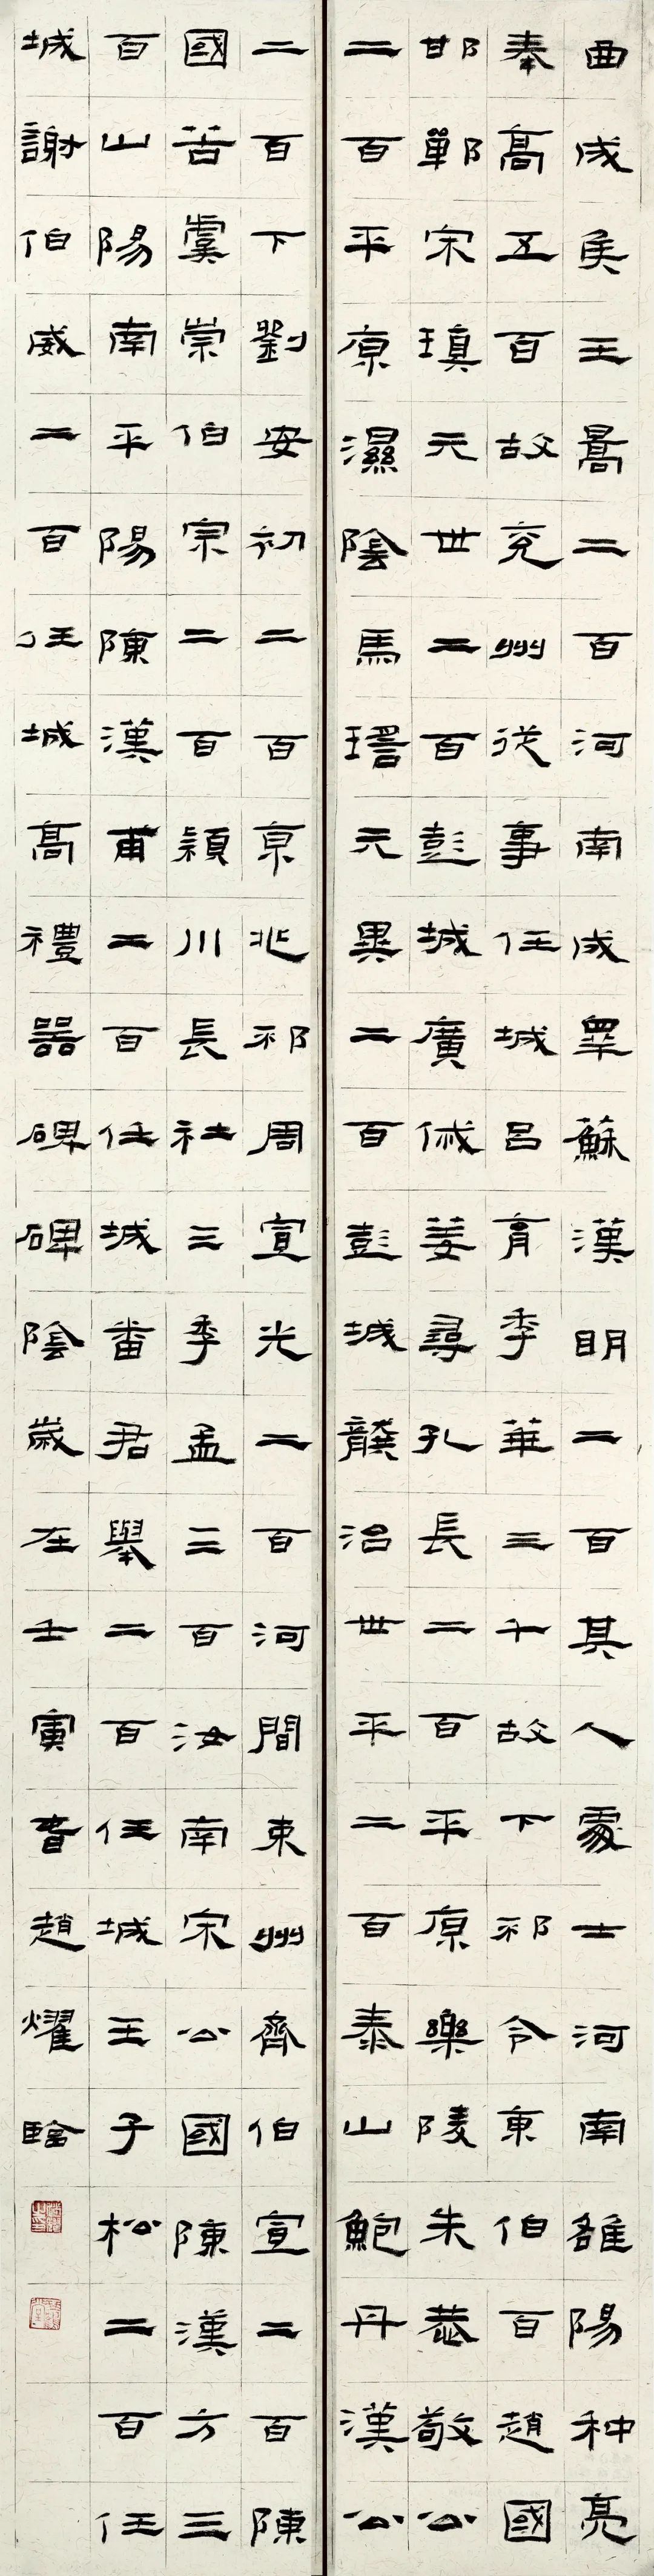 曲成侯王暠二百河南成睾蘇漢明二百其人處士河南雒陽种亮
奉高五百故兗州從事任城呂育季華三千故下邳令東伯百趙國
邯鄲宋瑱元世二百彭城廣戚姜尋孔長二百平原樂陵朱恭敬公
二百平原濕陰馬瑶元冀二百彭城龔治世平二百泰山鮑丹漢公
二百下劉安初二百京兆邳周宣光二百河間東州齊伯宣二百陳
國苦虞崇伯宗二百潁川長社三季孟三百汝南宋公國陳漢方三
百山陽南平陽陳漢甫二百任城番君舉二百任城王子松二百任
城謝伯威二百任城高禮器碑碑陰歲在壬寅春趙燿臨